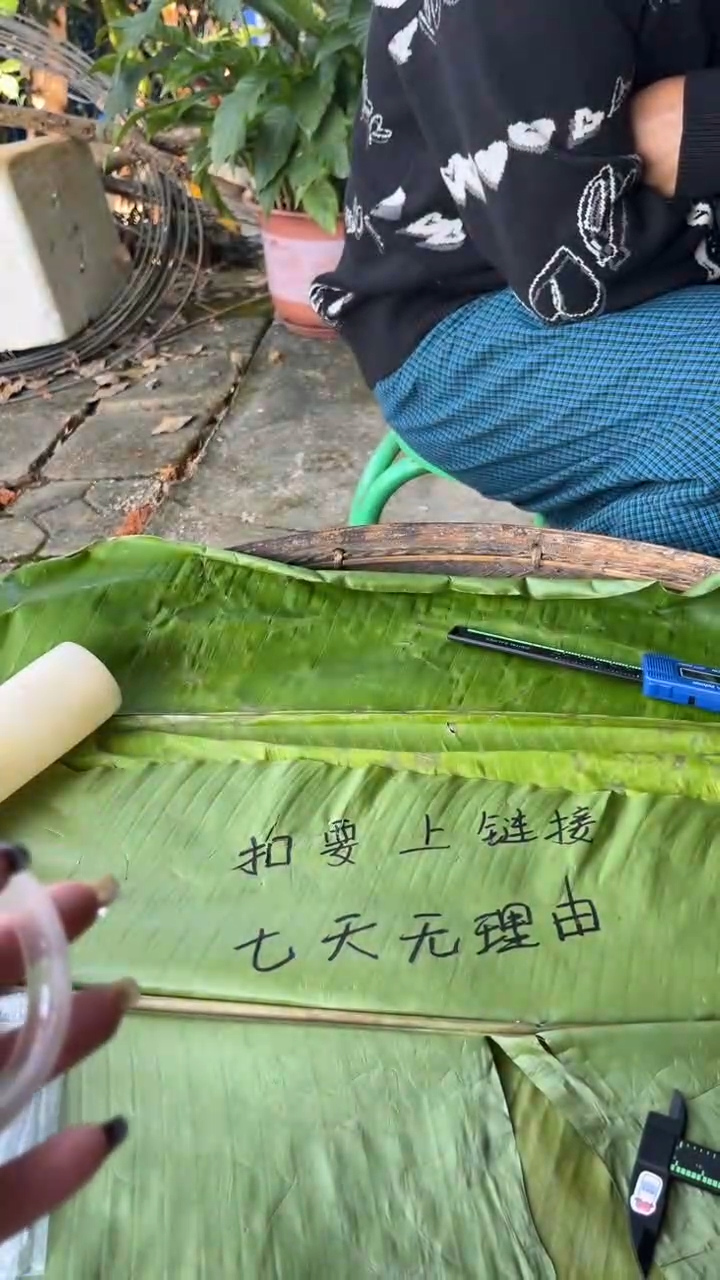 扣要上链接
七天无理由